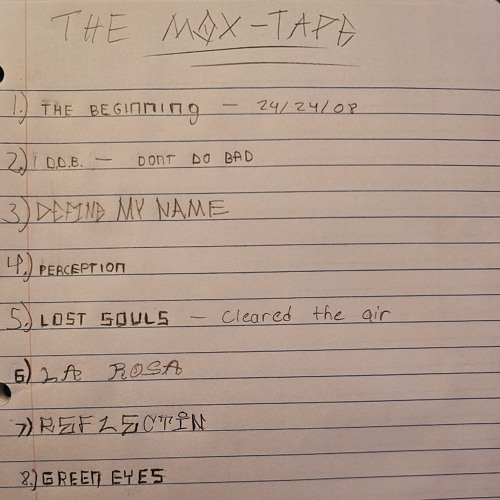 THE MOX-TAPE
1.) THE BEGINNING - 24/24/08
2.) D.D.B. - DONT DO BAD
3) DEFINE MY NAME
4.) PERCEPTION
5.) LOST SOULS - cleared the air
6) LA ROSA
7) REFLECTIN
8.) GREEN EYES